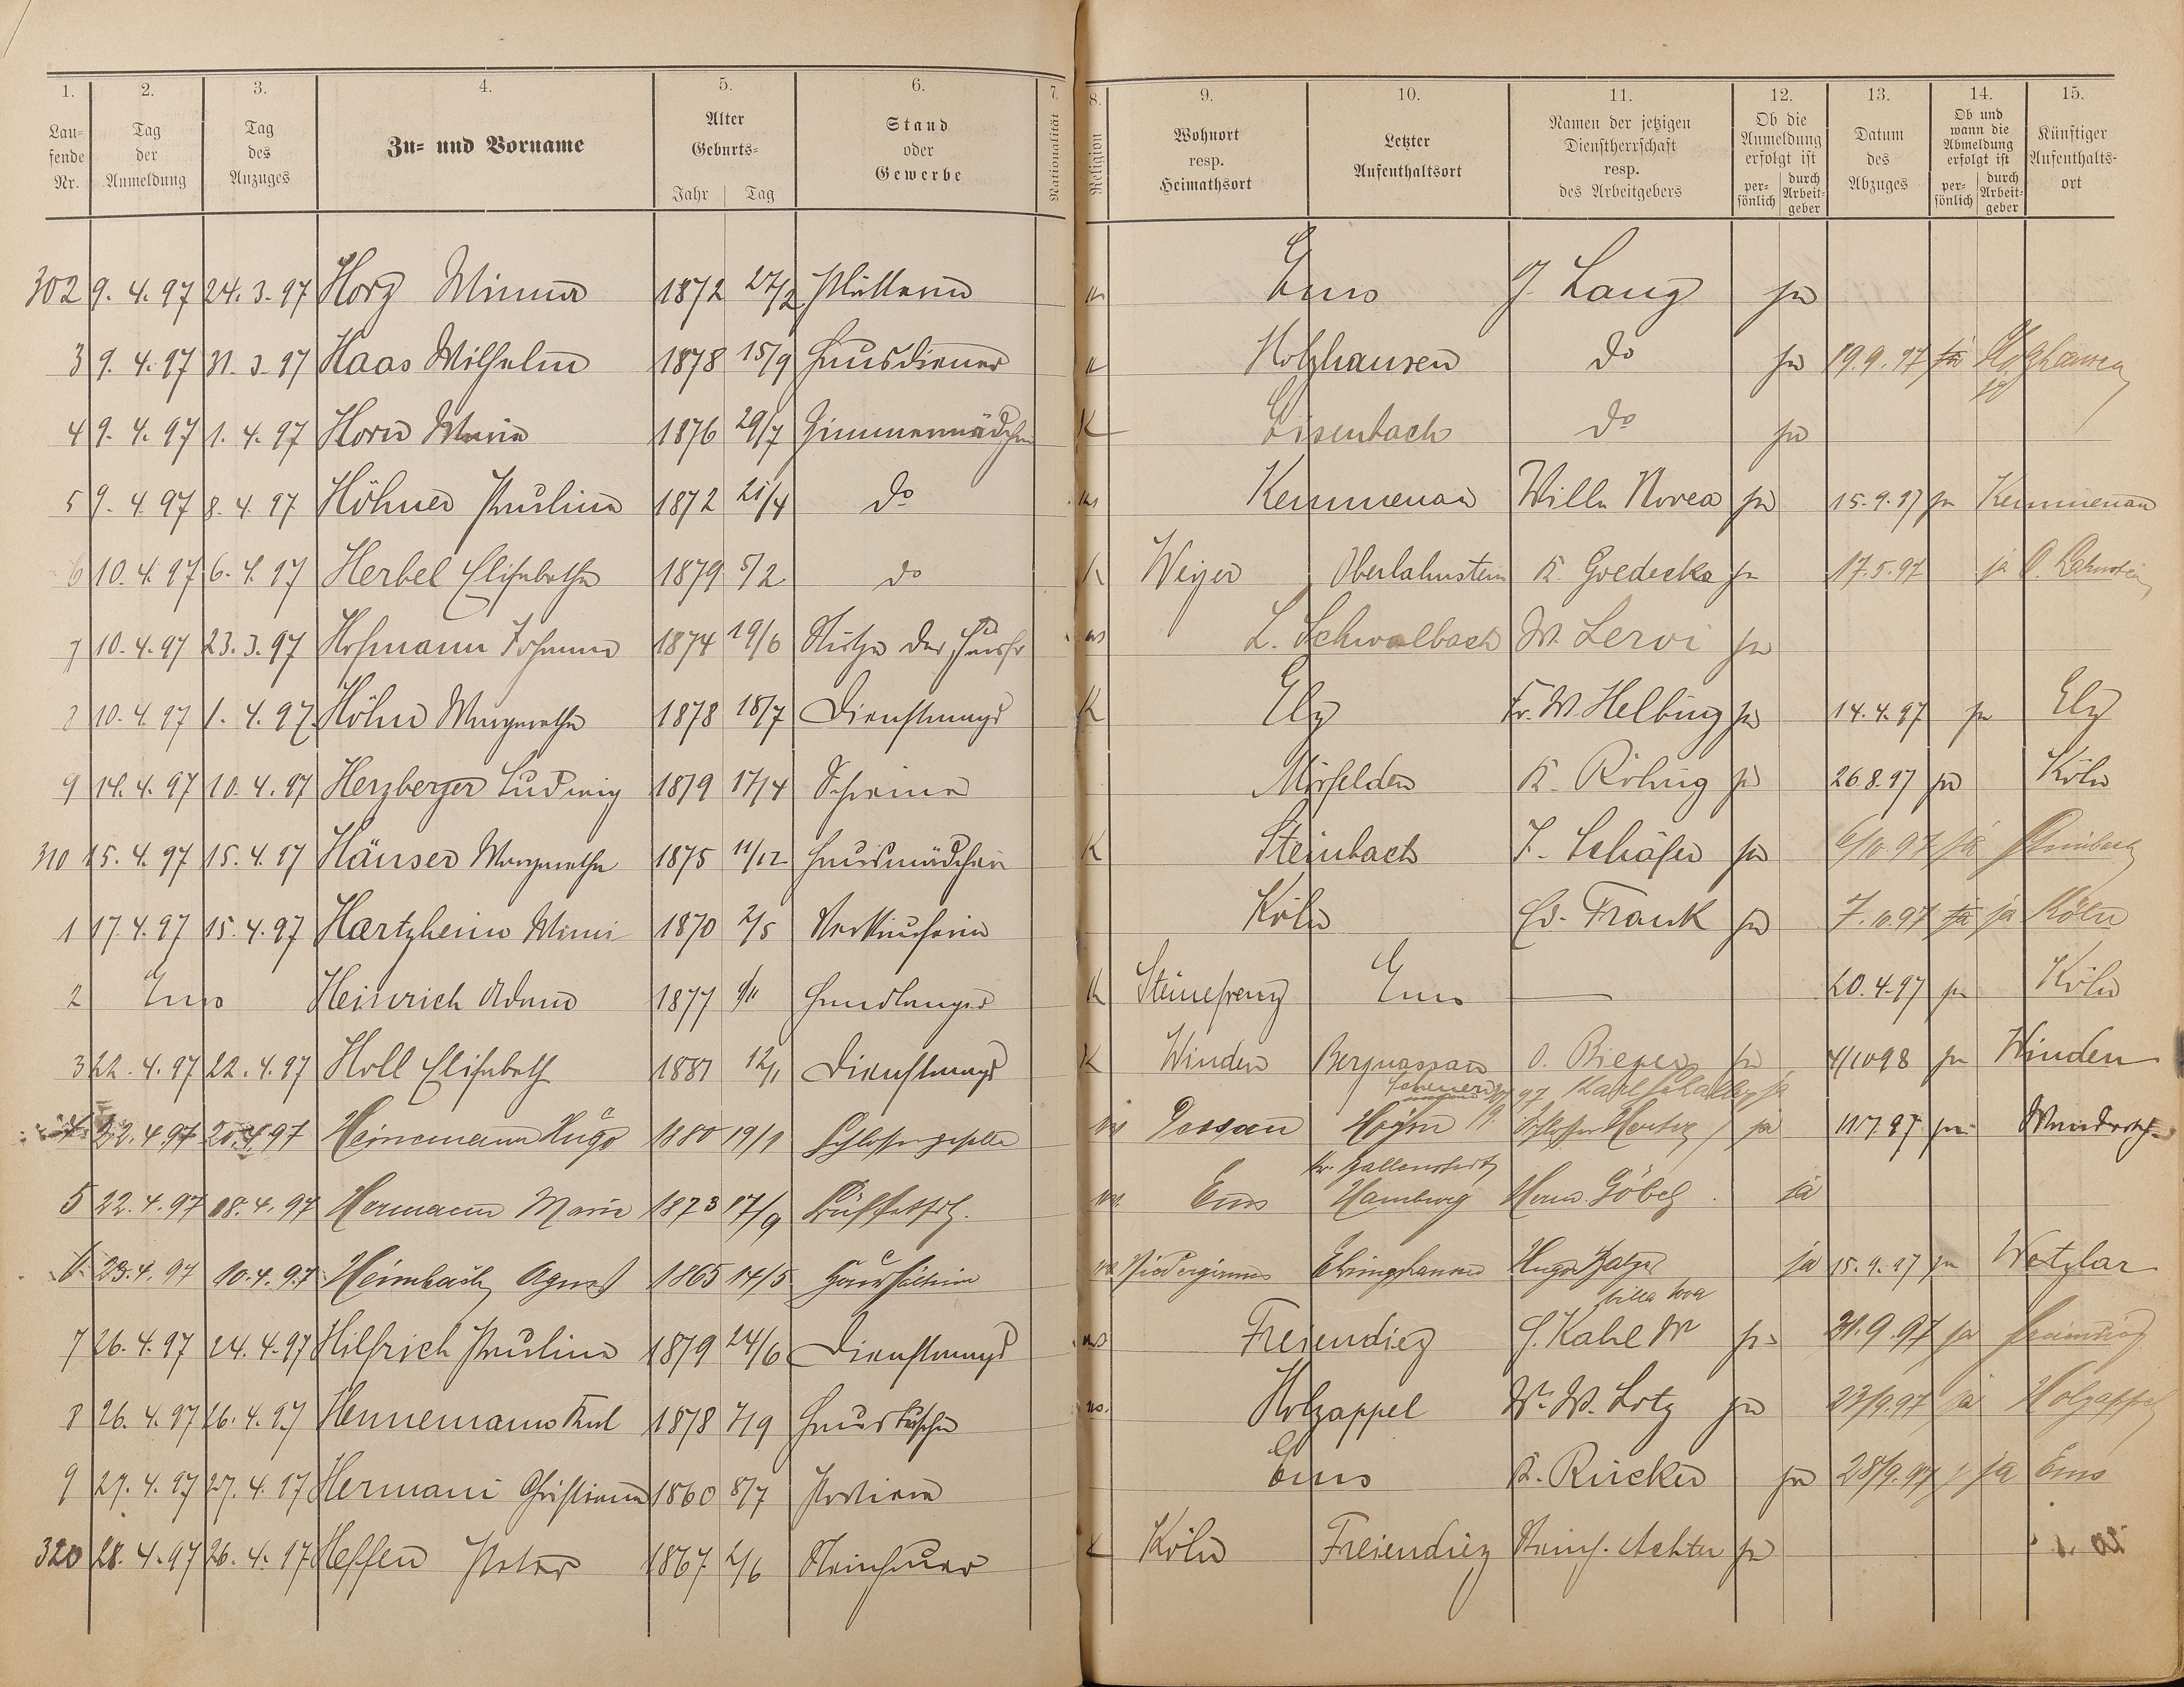 1. 2. 3. 4. 5. 6. 7. 8. 9. 10. 11. 12. 13. 14. 15.
Lau-
fende
Nr.
Tag
der
Anmeldung
Tag
des
Anzuges
Zu- und Vorname
Alter
Geburts-
Jahr Tag
Stand
oder
Gewerbe
Nationalität
Religion
Wohnort
resp.
Heimathsort
Letzter
Aufenthaltsort
Namen der jetzigen
Dienstherrschaft
resp.
des Arbeitgebers
Ob die
Anmeldung
erfolgt ist
per-
sönlich
durch
Arbeit-
geber
Datum
des
Abzuges
Ob und
wann die
Abmeldung
erfolgt ist
per-
sönlich
durch
Arbeit-
geber
Künftiger
Aufenthalts-
ort
302 9. 4. 97 24. 3. 97 Horz Minna 1872 27/2 Ems J. Lang ja
3 9. 4. 97 31. 3. 97 Haas Wilhelm 1878 15/9 Hausdiener Holzhausen do ja 19.9.97 ja Holzhausen
4 9. 4. 97 1. 4. 97 Horn Maria 1876 29/7 Zimmermädchen K Eisenbach do ja
5 9. 4. 97 8. 4. 97 Höhner Paulina 1872 21/4 do Kemmenau Villa Novea ja 15.9.97 ja Kemmenau
6 10. 4. 97 6. 4. 97 Herbel Elisabetha 1879 5/2 do K Weyer Oberlahnstein K. Goedecke ja 17.5.97 ja O. Lahnstein
7 10. 4. 97 23. 3. 97 Hofmann Johanna 1874 19/6 Stütze der Hausfr L. Schwalbach W. Lervi ja
8 10. 4. 97 1. 4. 97 Höhn Margaretha 1878 18/7 Dienstmagd K Elz Fr. W. Helbing ja 14.4.97 ja Elz
9 14. 4. 97 10. 4. 97 Herzberger Ludwig 1879 17/4 Schreiner Mörfelden K. Röhrig ja 26.8.97 ja Köln
310 15. 4. 97 15. 4. 97 Häuser Margaretha 1875 11/12 Hausmädchen K Steinbach J. Schäfer ja 6/10.97 ja
1 17. 4. 97 15. 4. 97 Hartzheim Mimi 1870 2/5 Verkäuferin Köln Ed. Frank ja 7.10.97 ja ja Köln
2 Ems Heinrich Adam 1877 Handlanger K Steinefrenz Ems — 20.4.97 ja Köln
3 22. 4. 97 22. 4. 97 Holl Elisabeth 1881 12/1 Dienstmagd K Winden Bergnassau O. Rieper ja 4/10 98 ja Winden
97 Karl Schaller ja
4 22. 4. 97 20. 4. 97 Heinemann Hugo 1880 19/1 Schlossergeselle Dessau Hoym Schlosser ja ja
Kr. Ballenstedt
5 22. 4. 97 08. 4. 97 Hermann Marie 1873 17/9 Ems Hamburg Herm. Göbel ja
6 23. 4. 97 10. 4. 97 Heimbach Agnes 1865 14/5 Haushälterin Ehringshausen Hugo Balzer ja 15.9.97 ja Wetzlar
Villa
7 26. 4. 97 24. 4. 97 Hilfrich Paulina 1879 24/6 Dienstmagd Freiendiez C. Kahl Wr ja 21.9.97 ja Freiendiez
8 26. 4. 97 26. 4. 97 Hennemann Karl 1878 7/9 Hausbursche Holzappel Wr. W. Lotz ja 23/9.97 ja Holzappel
9 27. 4. 97 27. 4. 97 Hermani Christiann 1860 8/7 Portier Ems K. Rücker ja 28/9.97 ja Ems
320 28. 4. 97 26. 4. 97 Heffen Peter 1867 2/6 Steinhauer K Köln Freiendiez ja